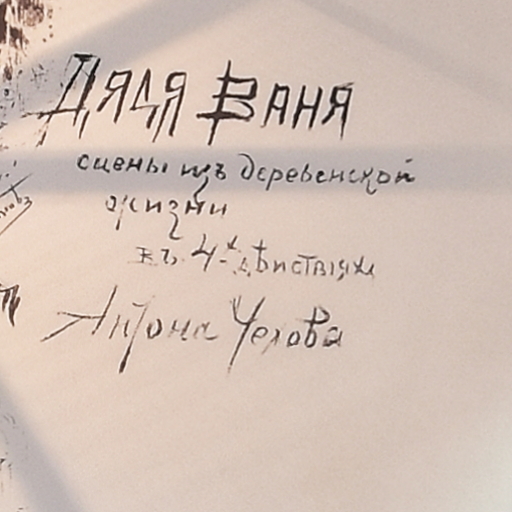 Дядя Ваня
сцены изъ деревенской
жизни
въ 4-х дѣйствіяхъ
Антона Чехова